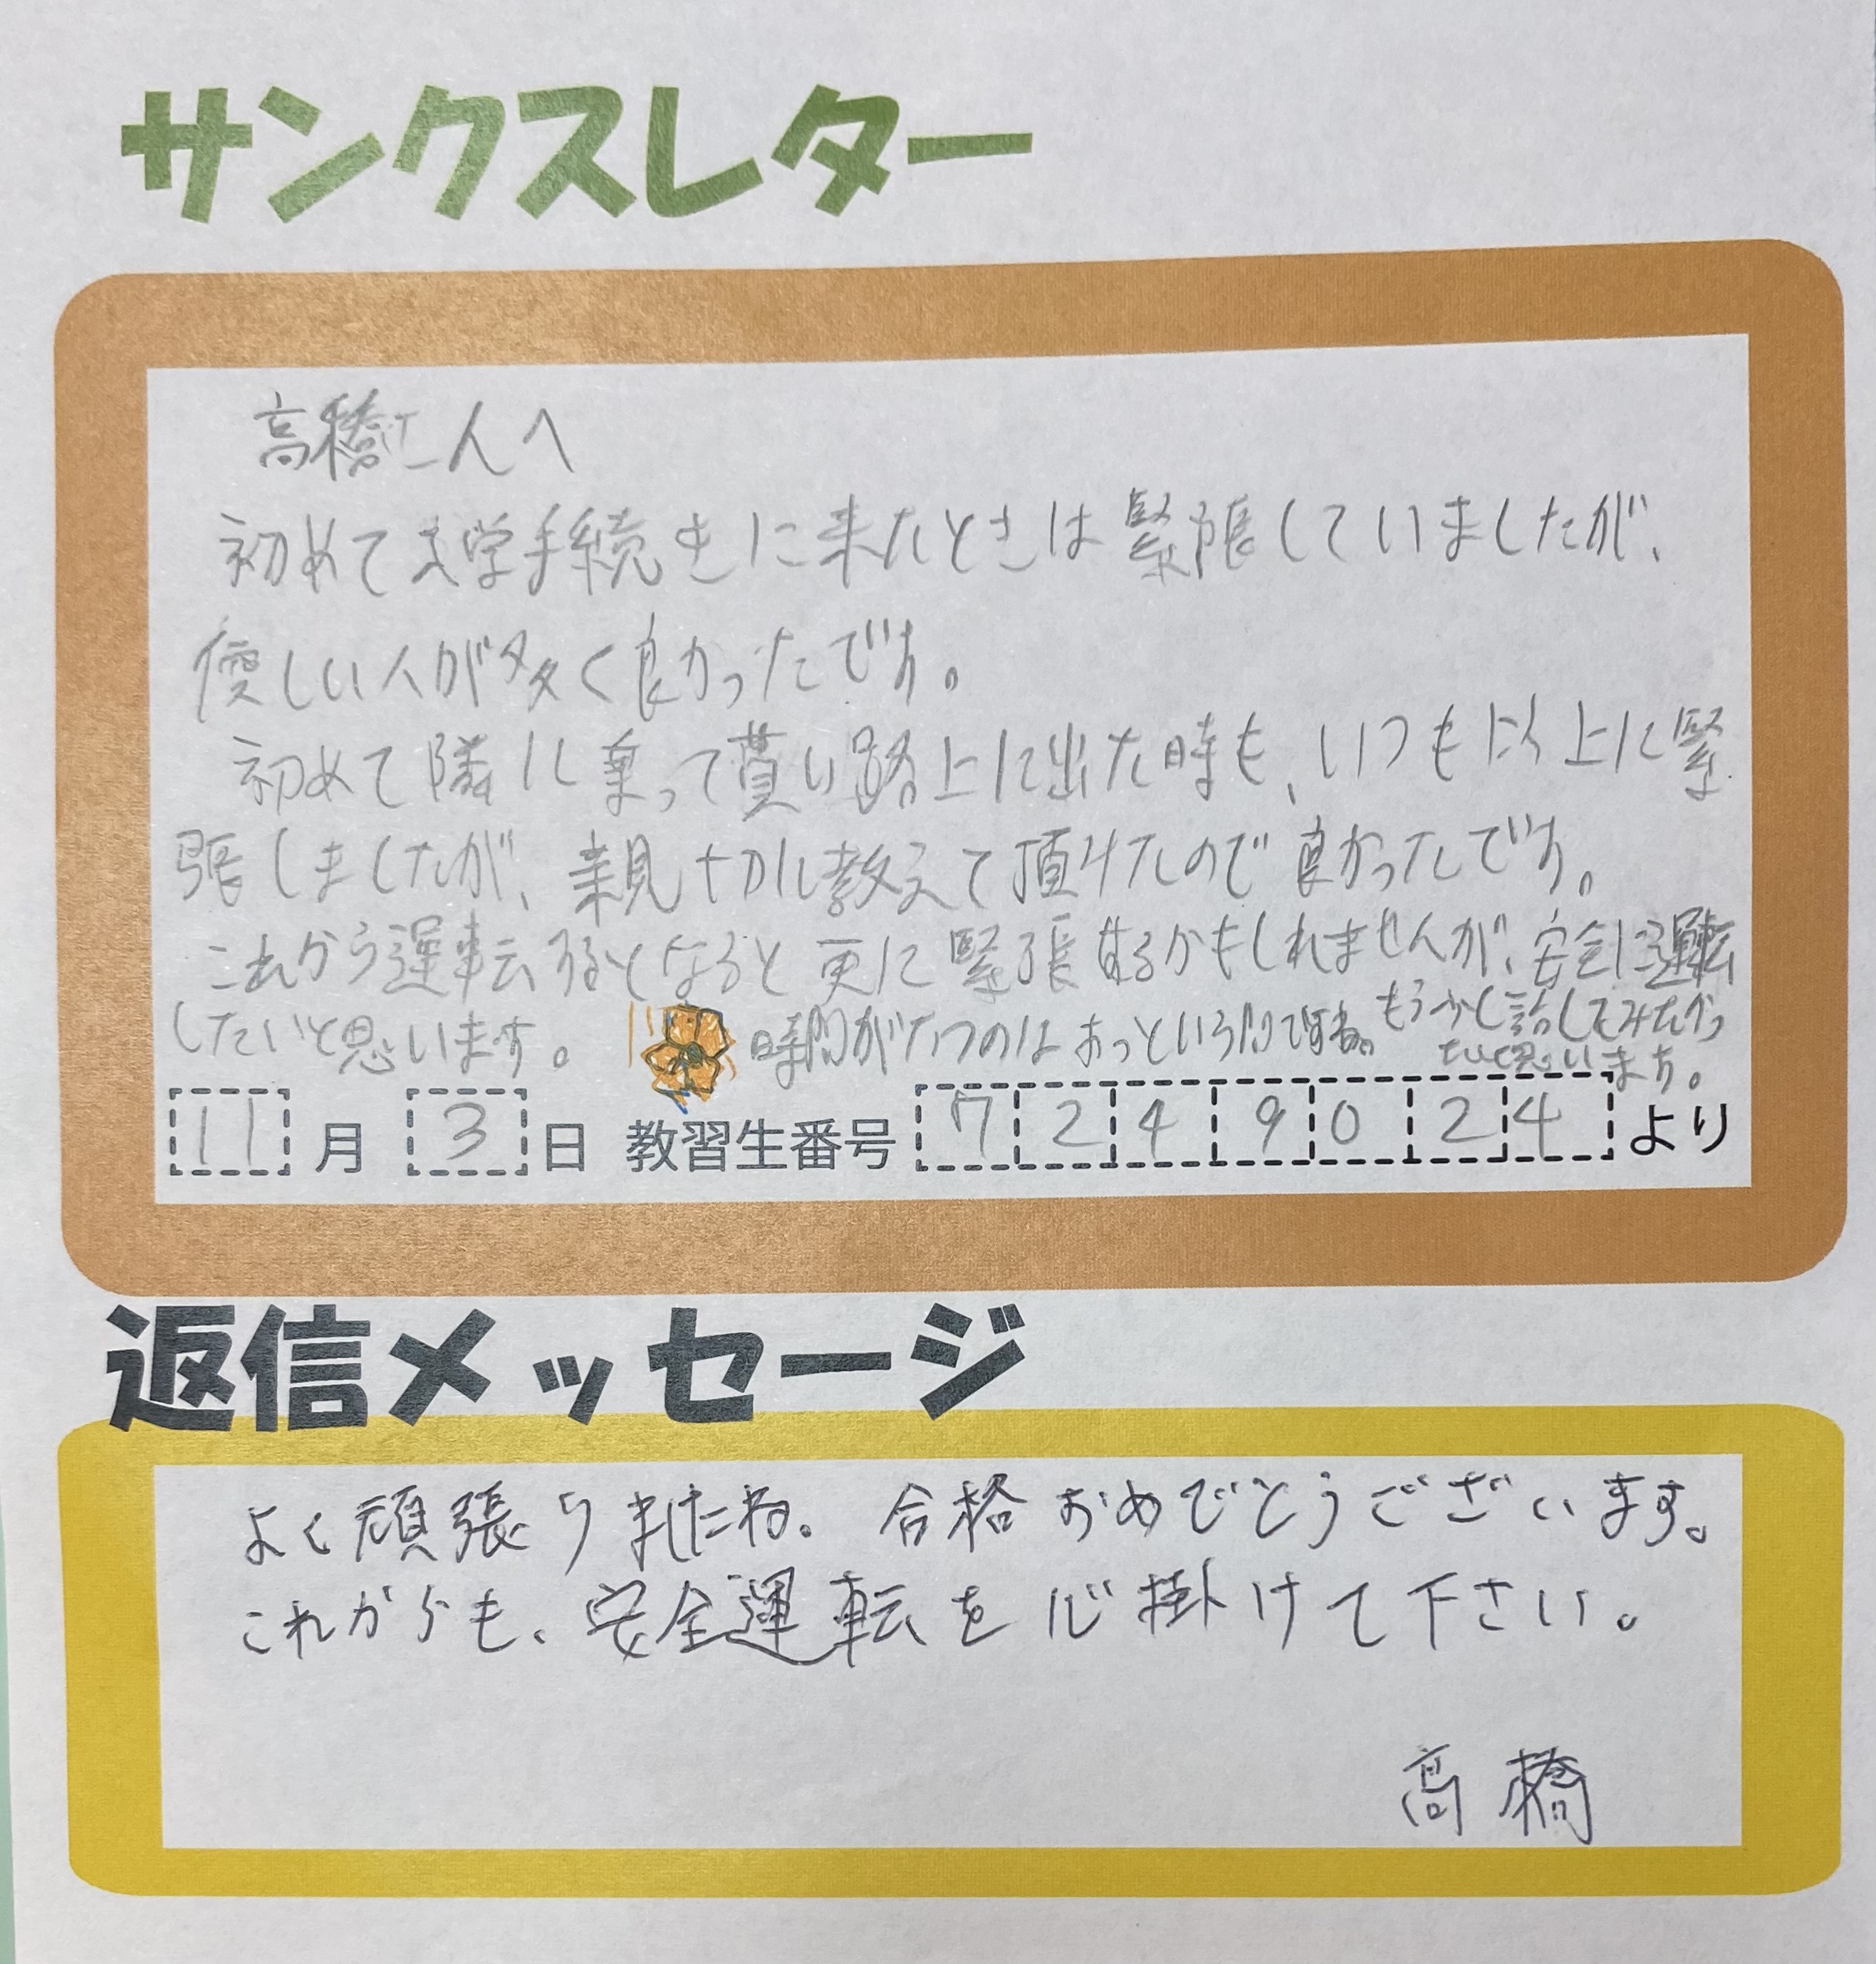 サンクスレター
高橋仁人へ
初めて入学手続きに来たときは緊張していましたが、
優しい人が多く良かったです。
初めて隣に乗って貰い路上に出た時も、いつも以上に緊
張しましたが、親切に教えて頂けたので良かったです。
これから運転するとなると更に緊張するかもしれませんが、安全に運転
したいと思います。 時間がたつのはあっという間ですね。もう少し話してみたかっ
たと思います。
11月3日 教習生番号 7249024 より
返信メッセージ
よく頑張りましたね。合格おめでとうございます。
これからも、安全運転を心掛けて下さい。
高橋